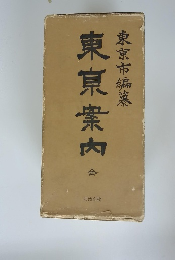 東京市編纂
東京案内
全